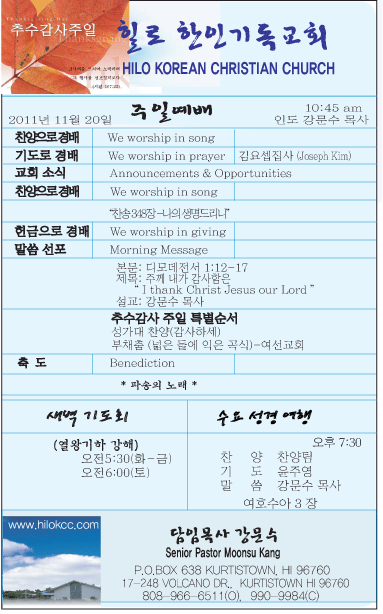 추수감사주일
힐로 한인기독교회
HILO KOREAN CHRISTIAN CHURCH
2011년 11월 20일 주일예배 10:45 am
인도 강문수 목사
찬양으로경배 We worship in song
기도로 경배 We worship in prayer 김요셉집사 (Joseph Kim)
교회 소식 Announcements & Opportunities
찬양으로경배 We worship in song
"찬송348장-나의생명드리니"
헌금으로 경배 We worship in giving
말씀 선포 Morning Message
본문: 디모데전서 1:12-17
제목: 주께 내가 감사함은
" I thank Christ Jesus our Lord "
설교: 강문수 목사
추수감사 주일 특별순서
성가대 찬양(감사하세)
부채춤 (넓은 들에 익은 곡식)-여선교회
축 도 Benediction
* 파송의 노래 *
새벽 기도회
(열왕기하 강해)
오전5:30(화-금)
오전6:00(토)
수요 성경 여행
오후 7:30
찬 양 찬양팀
기 도 윤주영
말 씀 강문수 목사
여호수아 3 장
www.hilokcc.com
담임목사 강문수
Senior Pastor Moonsu Kang
P.O.BOX 638 KURTISTOWN, HI 96760
17-248 VOLCANO DR., KURTISTOWN HI 96760
808-966-6511(O), 990-9984(C)